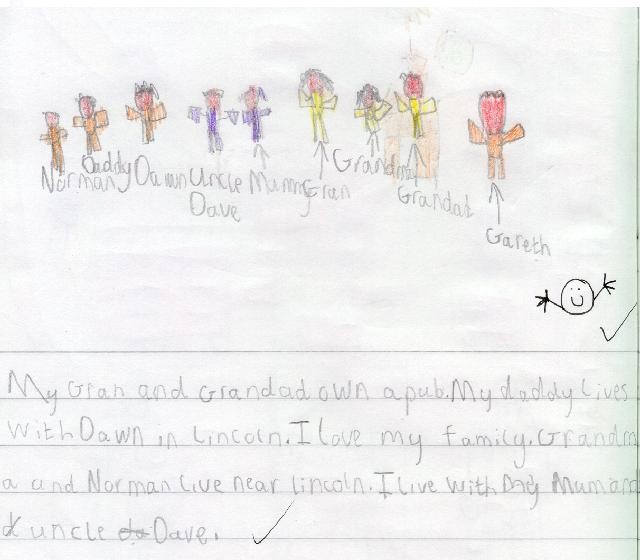 Norman Daddy Dawn Uncle Dave Mummy Gran Grandma Grandad Gareth
My Gran and Grandad own a pub. My daddy lives
with Dawn in Lincoln. I love my family. Grandm
a and Norman live near lincoln. I live with my Mum an
d uncle Dave.